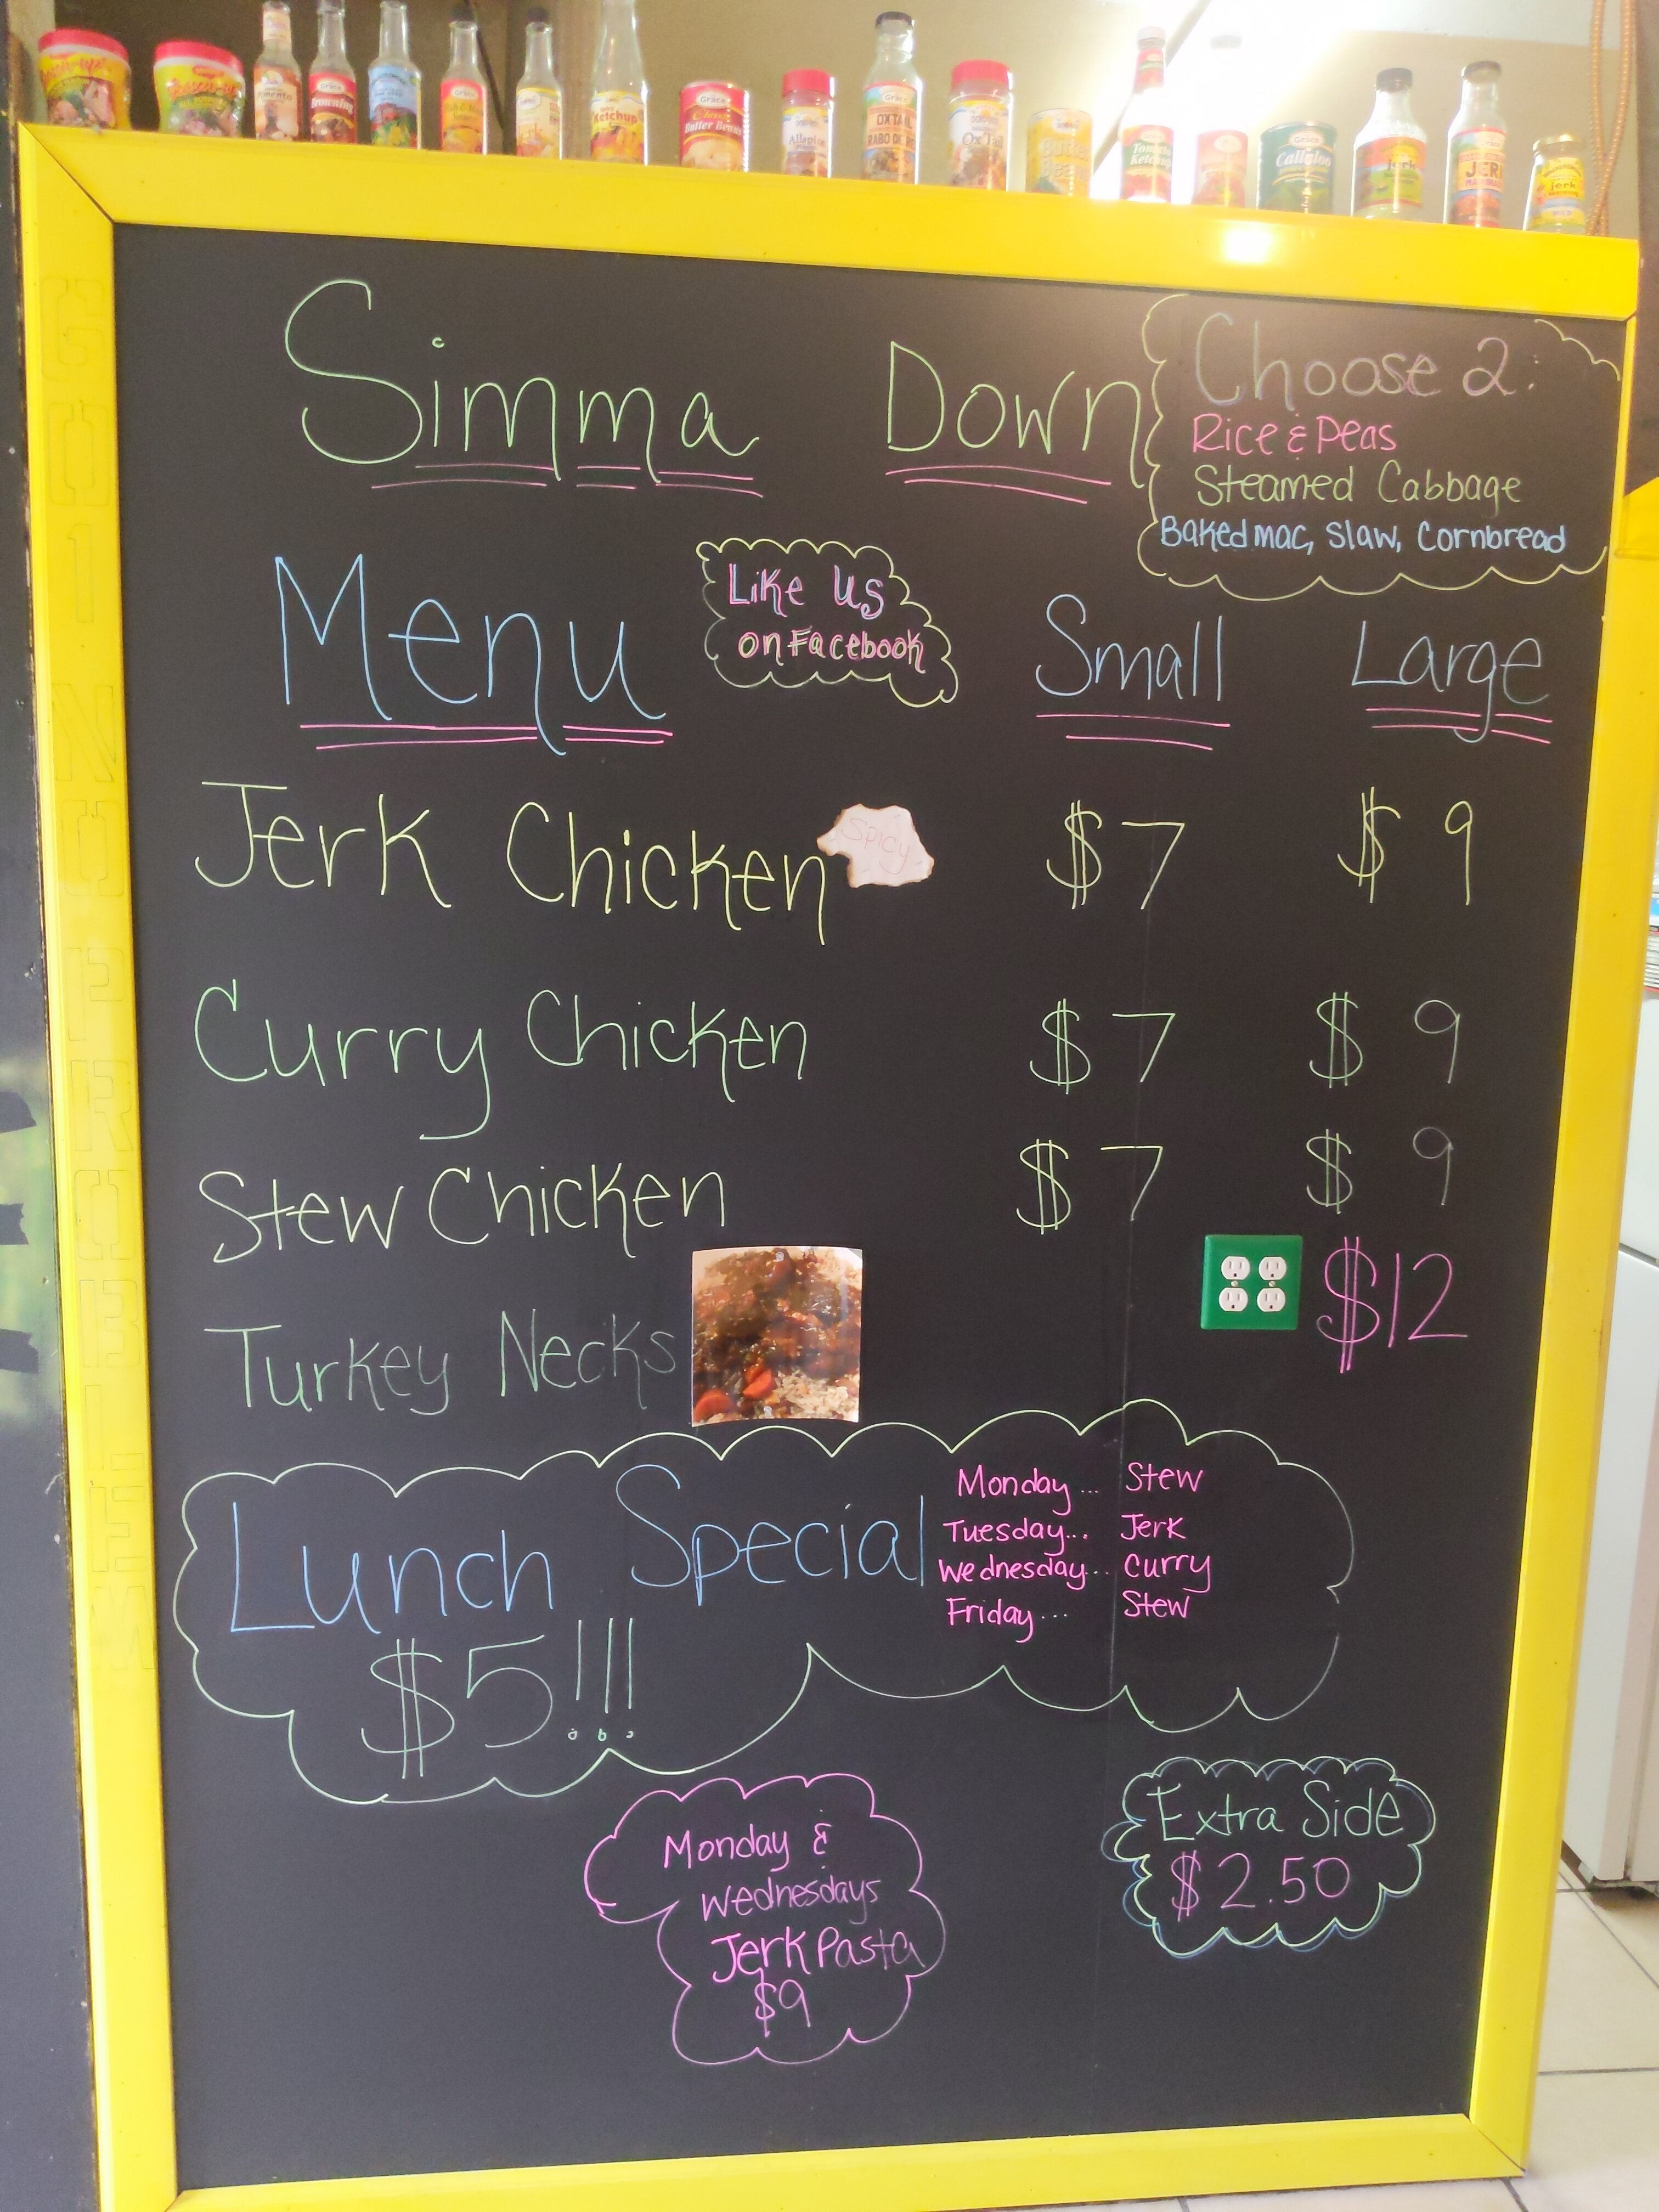 Grace
Browning
Ketchup
Grace
Classic
Butter Beans
Grace
OXTAIL
RABO DE RES
Grace
Ox Tail
Tomato
Ketchup
Grace
Callaloo
jerk
Grace
JERK
jerk
Simma Down
Choose 2:
Rice & Peas
Steamed Cabbage
Baked mac, Slaw, Cornbread
Menu
Like us
on Facebook
Small Large
Jerk Chicken Spicy $7 $9
Curry Chicken $7 $9
Stew Chicken $7 $9
Turkey Necks $12
Lunch Special
$5!!!
Monday... Stew
Tuesday... Jerk
Wednesday... Curry
Friday... Stew
Monday &
Wednesdays
Jerk Pasta
$9
Extra Side
$2.50